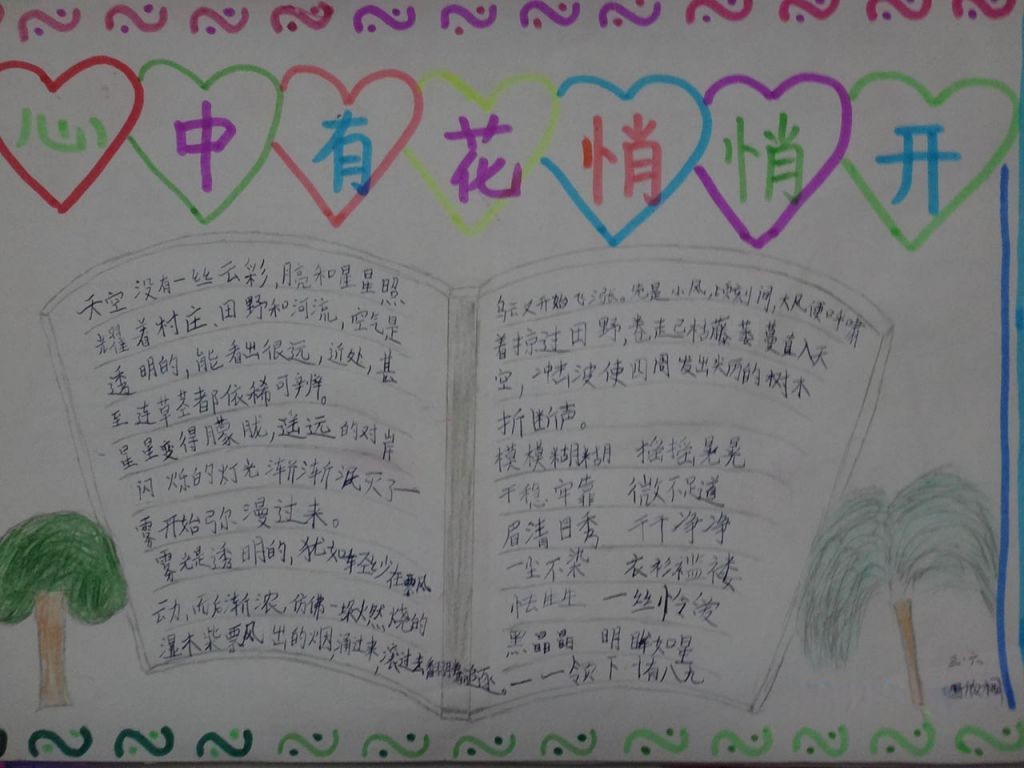 心中有花悄悄开
天空没有一丝云彩,月亮和星星照
耀着村庄、田野和河流,空气是
透明的,能看出很远,近处,甚
至连草茎都依稀可辨。
星星变得朦胧,遥远的对岸
闪烁的灯光渐渐泯灭了一
雾开始弥漫过来。
雾先是透明的,犹如轻纱在飘
动,而后渐浓,仿佛一垛火燃烧的
湿木柴飘出的烟,涌过来,滚过去
乌云又开始飞涨。先是小风,顷刻间,大风便呼啸
着掠过田野,卷走已枯藤萋蔓直入天
空,冲击波使四周发出尖厉的树木
折断声。
模模糊糊 摇摇晃晃
平稳牢靠 微不足道
眉清目秀 干干净净
一尘不染 衣衫褴褛
怯生生 一丝怜
黑晶晶 明眸如星
一一领下 有八九
五·六